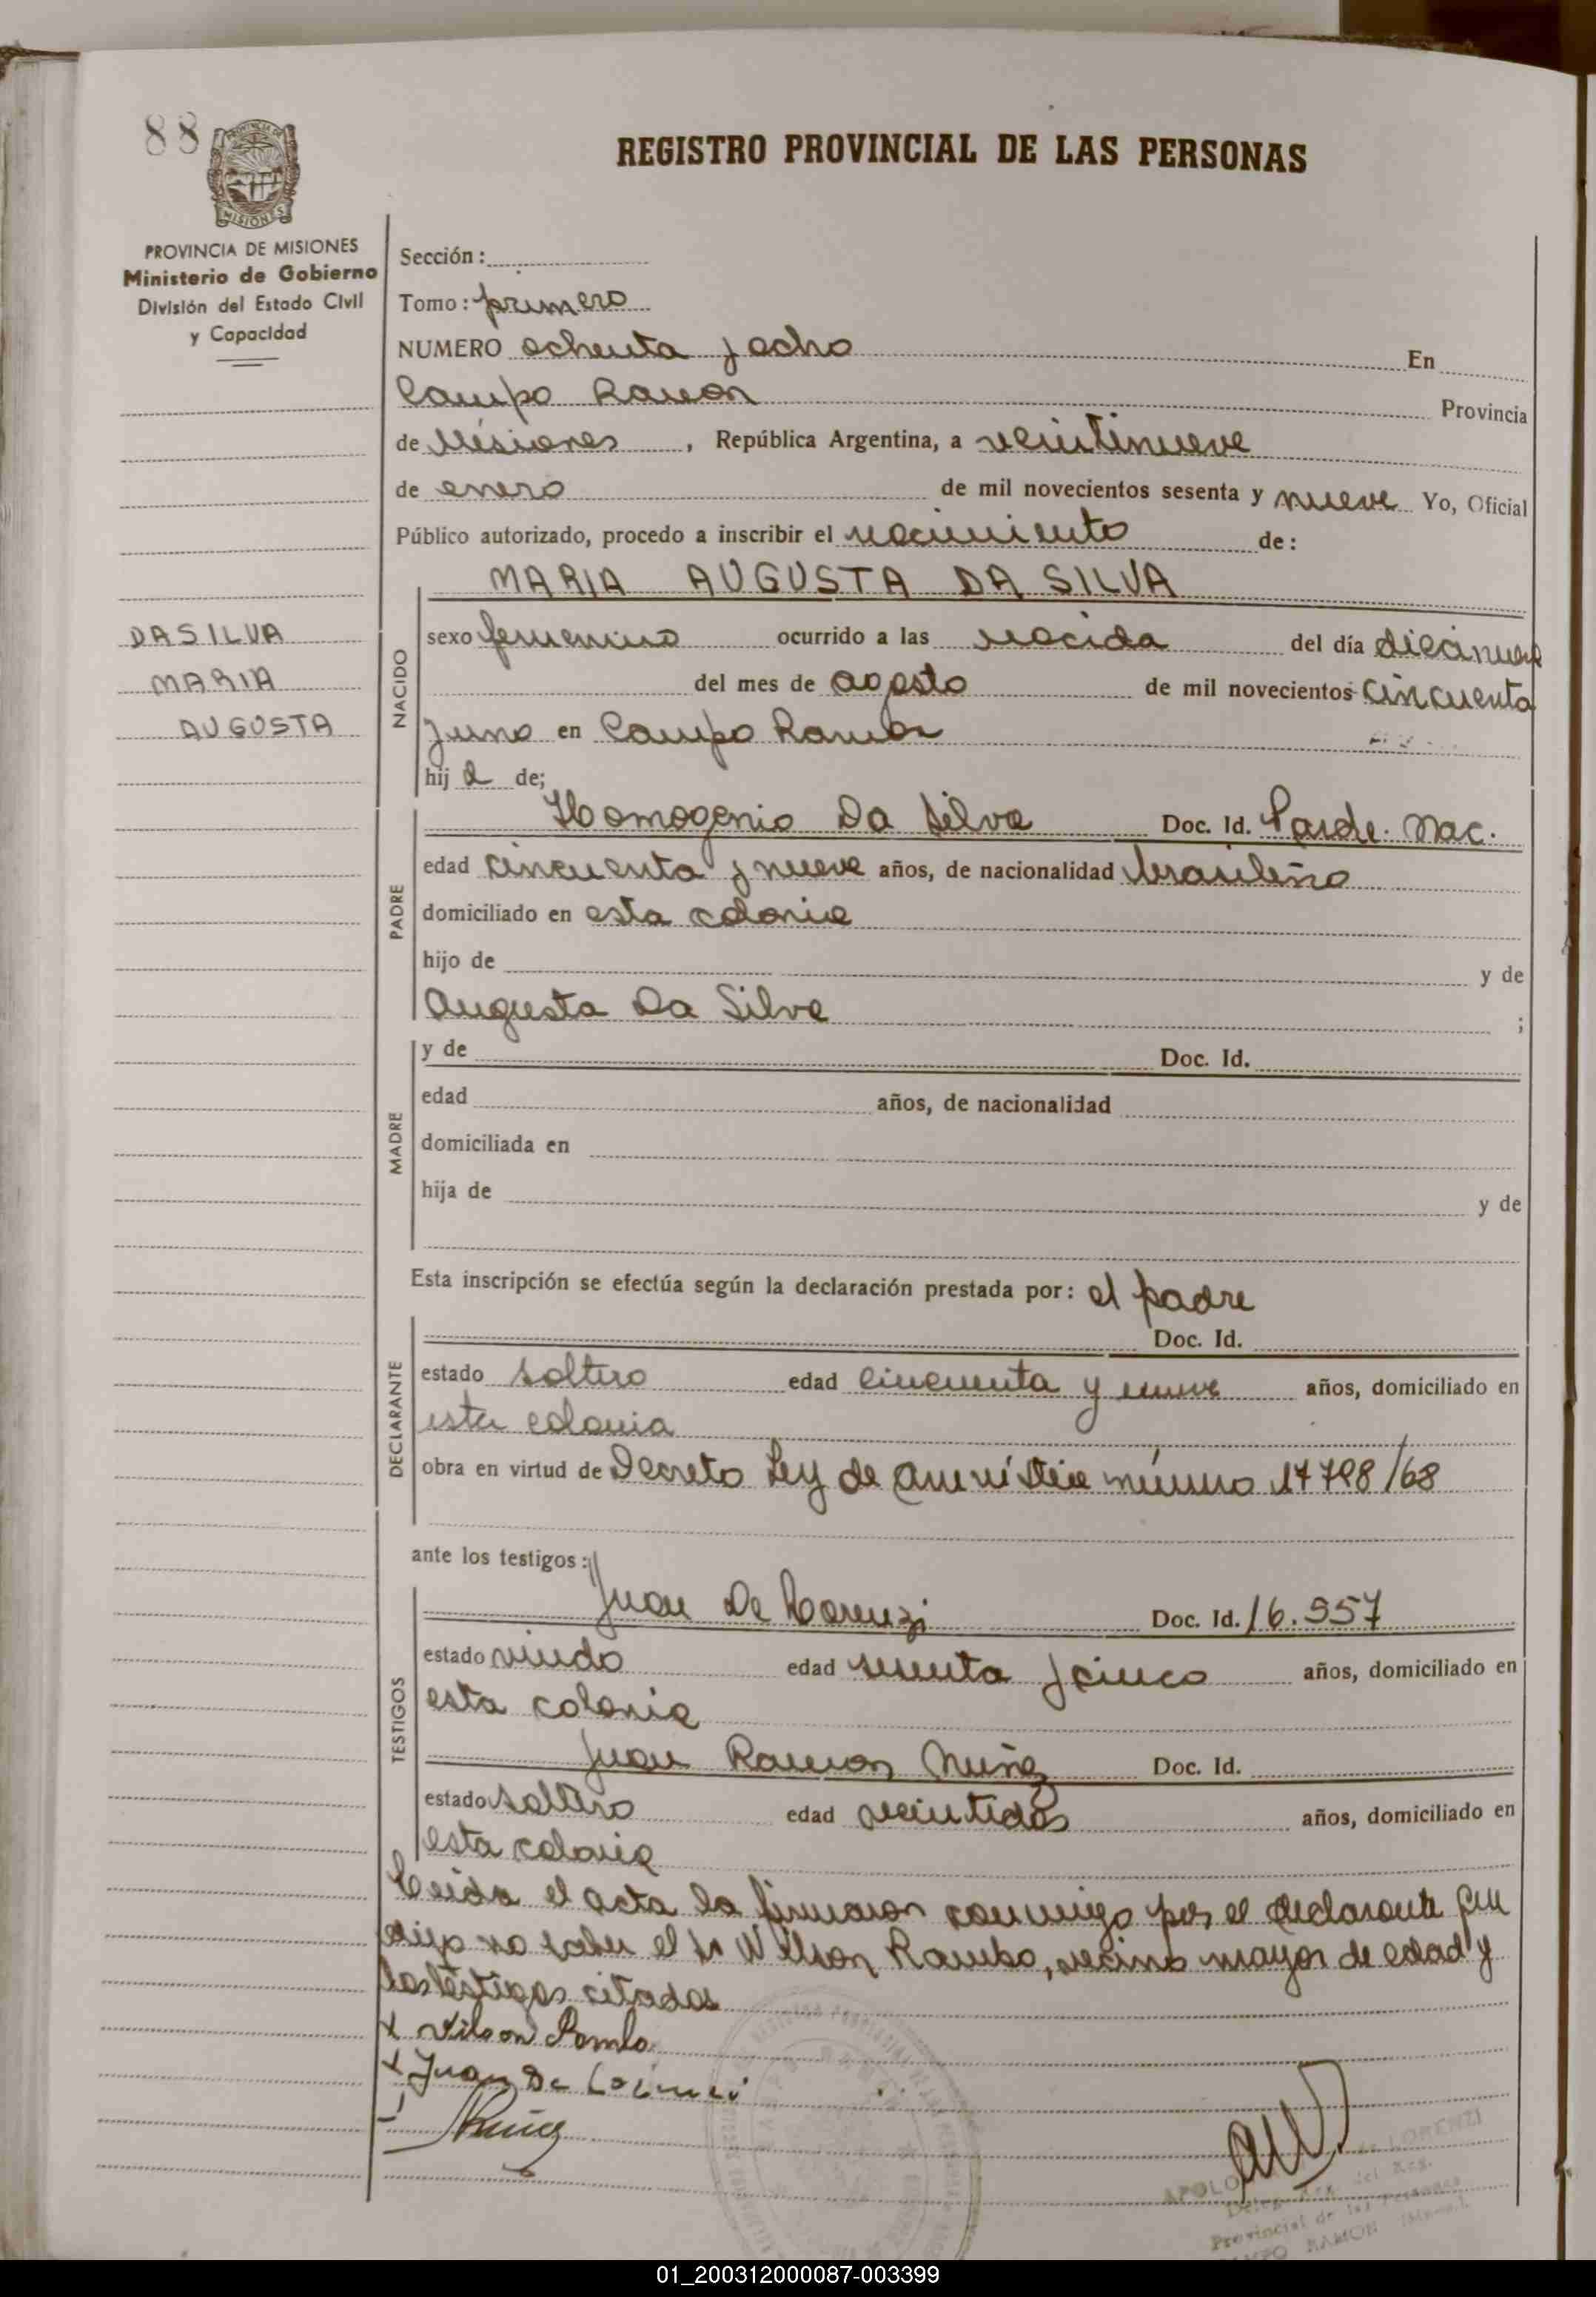 88
REGISTRO PROVINCIAL DE LAS PERSONAS
PROVINCIA DE MISIONES
Ministerio de Gobierno
División del Estado Civil
y Capacidad
Sección:
Tomo: primero
NUMERO ochenta y ocho En
Campo Ramon Provincia
de Misiones, República Argentina, a veintinueve
de enero de mil novecientos sesenta y nueve Yo, Oficial
Público autorizado, procedo a inscribir el nacimiento de:
MARIA AUGUSTA DA SILVA
DA SILVA
MARIA
AUGUSTA
NACIDO
sexo femenino ocurrido a las nacida del día diecinueve
del mes de agosto de mil novecientos cincuenta
y uno en Campo Ramon
hij a de;
PADRE
Homogenio Da Silva Doc. Id. Parde. Nac.
edad cincuenta y nueve años, de nacionalidad brasileño
domiciliado en esta colonia
hijo de y de
Augusta Da Silva ;
MADRE
y de Doc. Id.
edad años, de nacionalidad
domiciliada en
hija de y de
Esta inscripción se efectúa según la declaración prestada por: el padre
DECLARANTE
Doc. Id.
estado soltero edad cincuenta y nueve años, domiciliado en
esta colonia
obra en virtud de Decreto Ley de amnistia número 17798/68
ante los testigos:
TESTIGOS
Juan De Lorenzi Doc. Id. 16.957
estado viudo edad sesenta y cinco años, domiciliado en
esta colonia
Juan Ramon Nuñez Doc. Id.
estado soltero edad veintidos años, domiciliado en
esta colonia
Leida el acta la firmaron conmigo por el declarante que
dijo no saber el Sr Wilson Rambo, vecino mayor de edad y
los testigos citados
x Vilson Rambo
x Juan De Lorenzi
Nuñez
APOLO DE LORENZI
Deleg. Reg. del Reg.
Provincial de las Personas
CAMPO RAMON
01_200312000087-003399